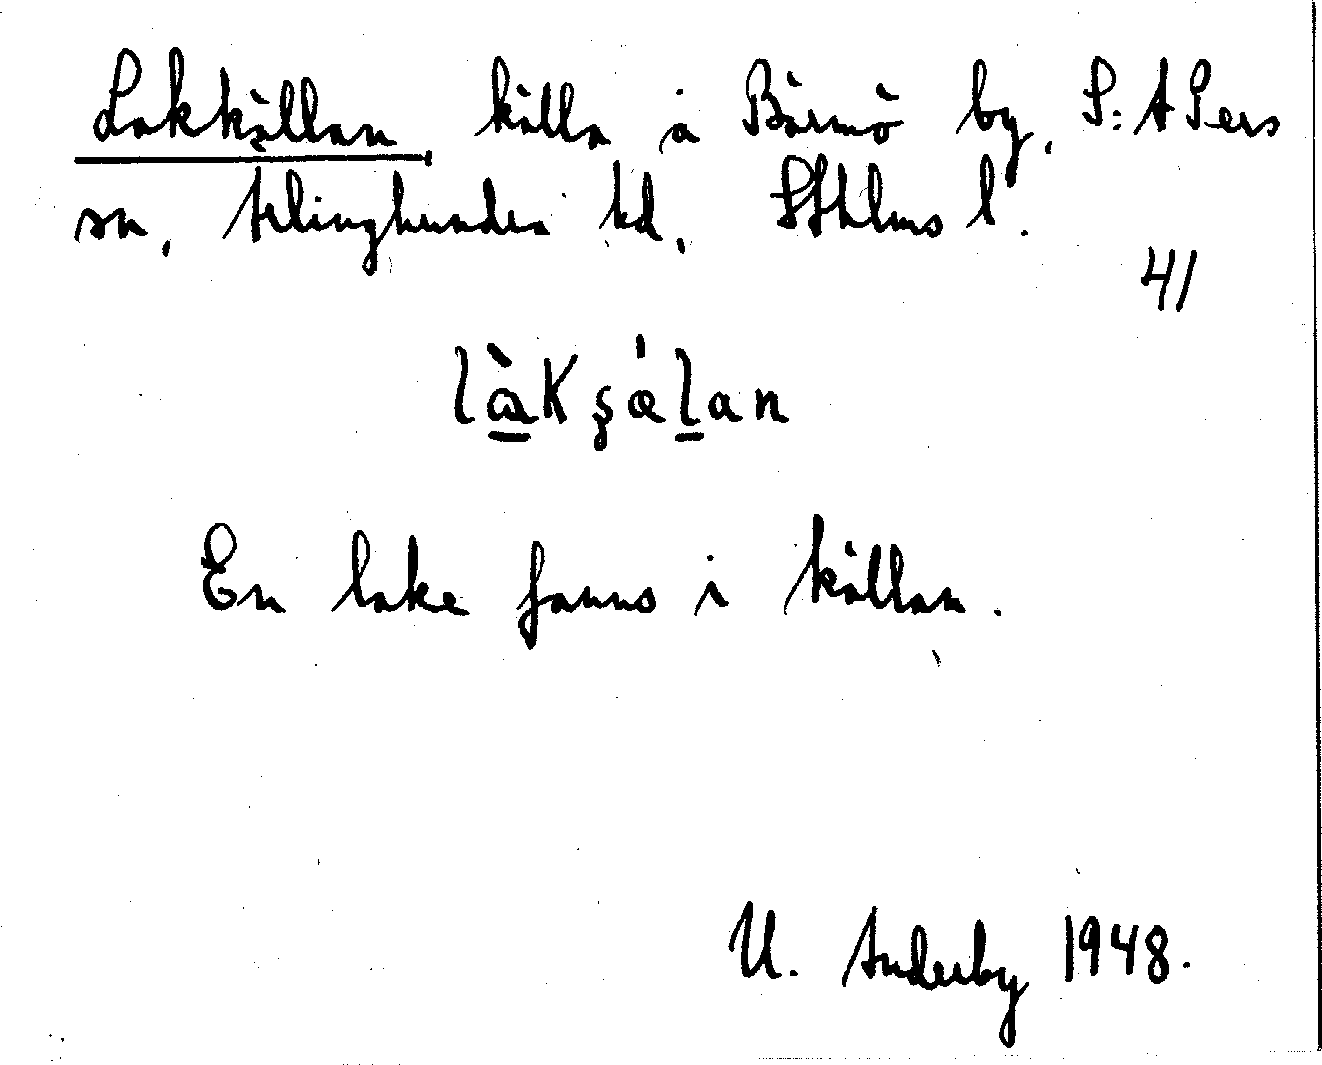 Lakkällan, källa å Bärmö by, S:t Pers
sn, Ärlinghundra hd, Sthlms l.
41
làkʂǽlan
En lake fanns i källan.
U. Anderby 1948.